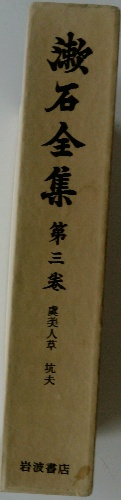 漱石全集
第三巻
虞美人草 坑夫
岩波書店